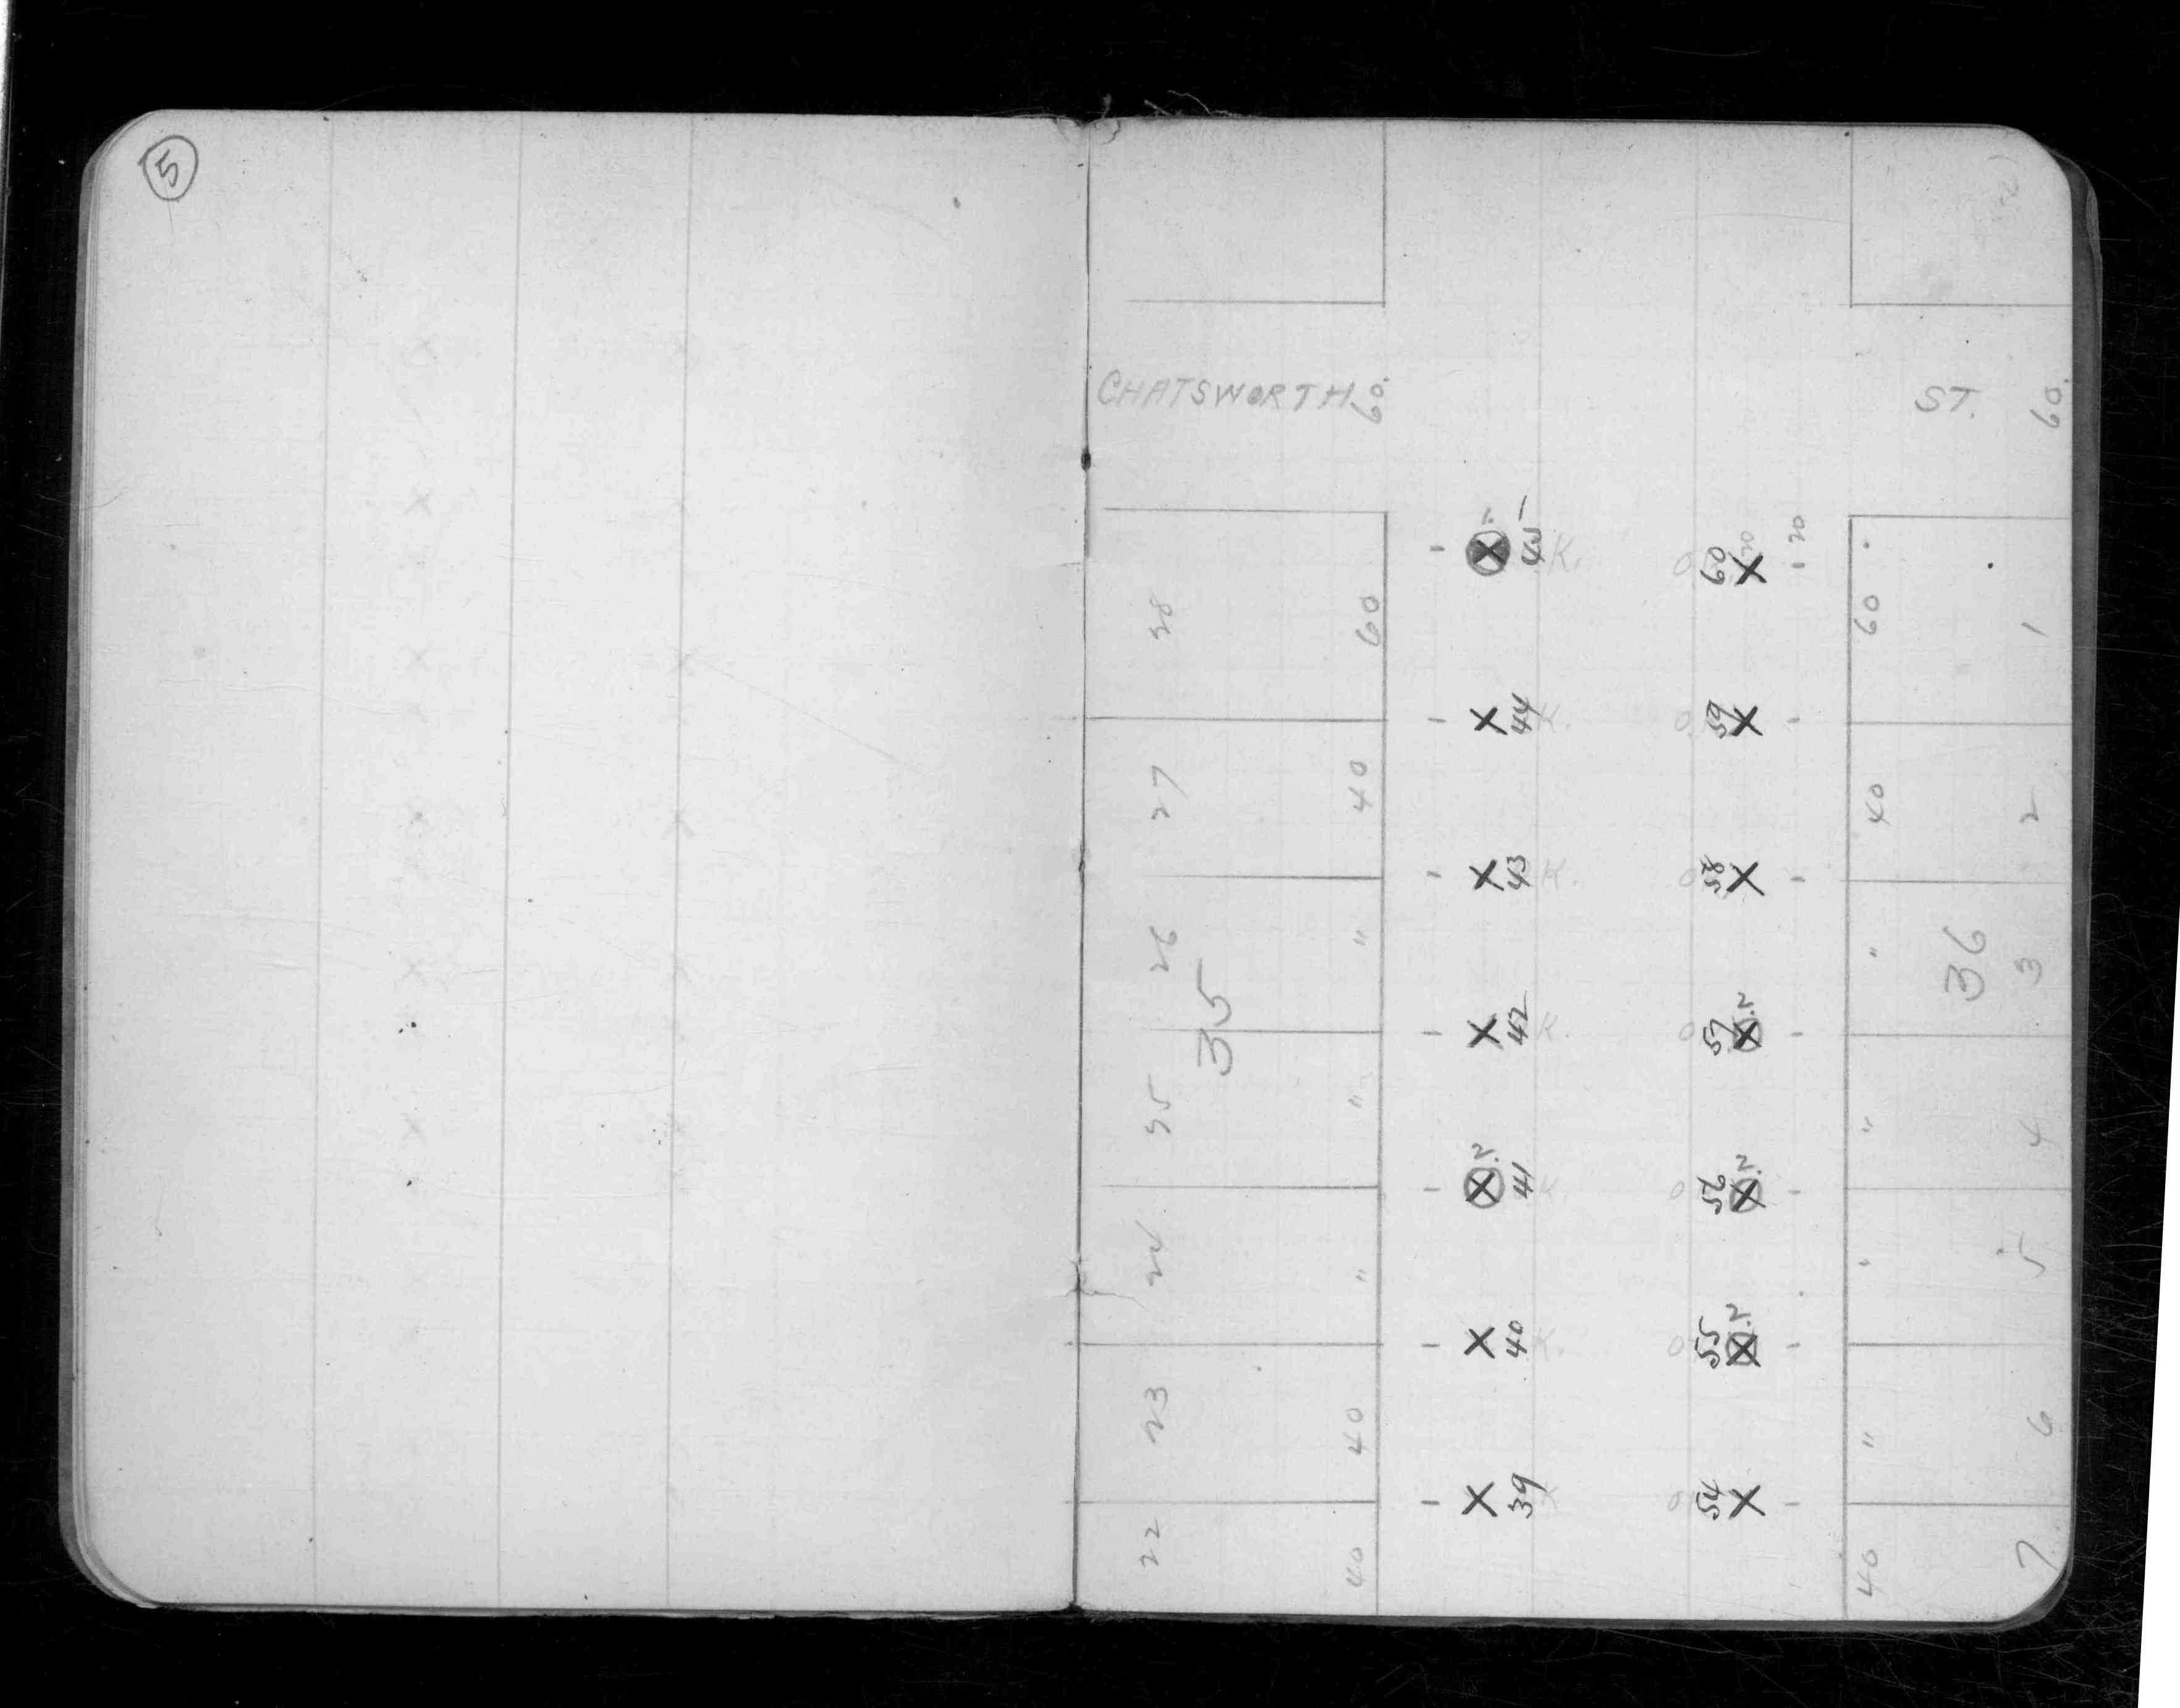 5
CHATSWORTH 60.
ST. 60.
45
60
20
20
28
60
60
1
44
59
27
40
40
2
43
58
26
"
"
36
3
35
42
57
2
25
"
"
4
2.
41
56
2.
24
"
"
5
40
55
2
23
40
"
6
39
54
22
40
40
7